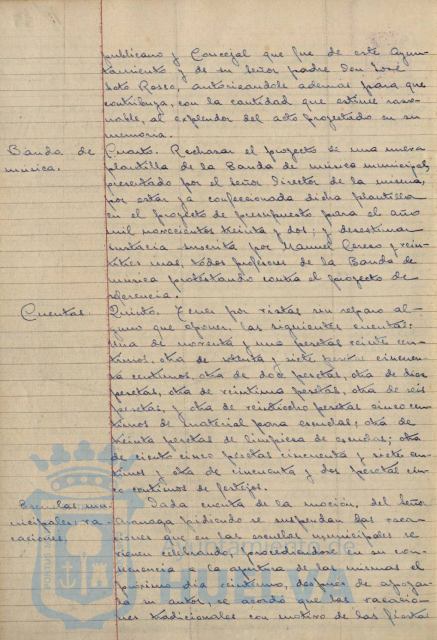 publicano y Concejal que fue de este Ayun-
tamiento y de su Señor padre Don José
Soto Roseo, autorizandole ademas para que
contribuya, con la cantidad que estime razo-
nable, al explendor del acto proyectado en su
memoria.
Banda de
música.
Cuarto. Rechazar el proyecto de una nueva
plantilla de la Banda de música municipal,
presentado por el señor Director de la misma,
por estar ya confeccionada dicha plantilla
en el proyecto de presupuesto para el año
mil novecientos treinta y dos; y desestimar
instacia suscrita por Manuel Cerezo y vein-
titres mas, todos profesores de la Banda de
música protestando contra el proyecto de
referencia.
Cuentas.
Quinto. Tener por vistas sin reparo al-
guno que oponer, las siguientes cuentas:
una de noventa y una pesetas veinte cen-
timos, otra de setenta y siete pesetas cincuenta
centimos, otra de doce pesetas, otra de diez
pesetas, otra de veintiuna pesetas, otra de seis
pesetas, y otra de veintiocho pesetas cinco cen-
timos de material para escuelas; otra de
treinta pesetas de limpieza de escuelas; otra
de ciento cinco pesetas cincuenta y siete cen-
timos y otra de cincuenta y dos pesetas cin-
co centimos de festejos.
Escuelas mu-
nicipales: va-
caciones.
Dada cuenta de la moción, del Señor
pidiendo se suspendan las vaca-
ciones que en las escuelas municipales se
vienen celebrando, procediendose en su con-
secuencia a la apertura de las mismas el
próximo dia veintiuno, despues de apoyar-
la su autor, se acordó que las vacacio-
nes tradicionales con motivo de las fiestas